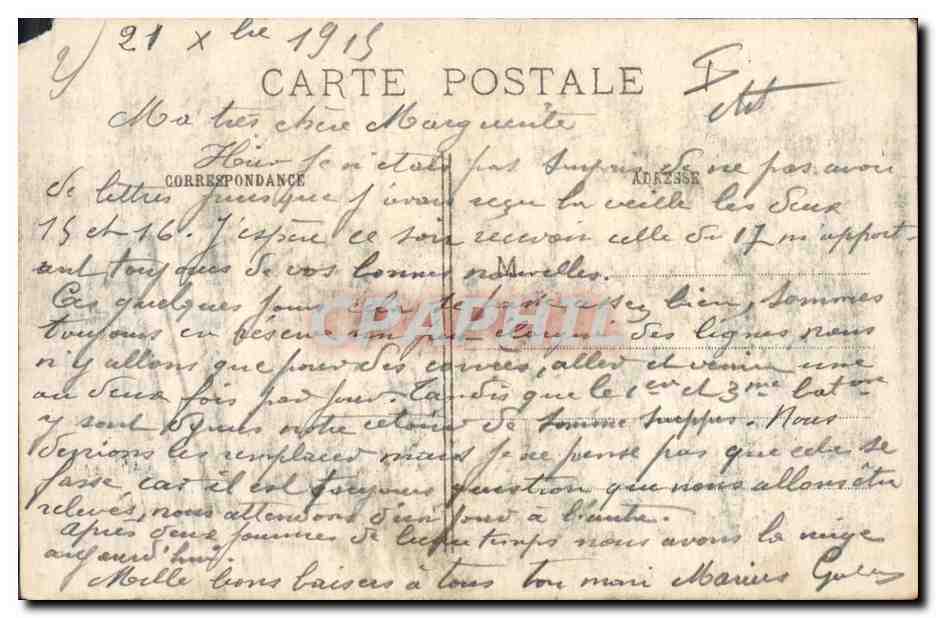 21 Xbre 1915
CARTE POSTALE
Ma très chère Marguerite
Hier je n'étais pas surpris de ne pas avoir
CORRESPONDANCE
ADRESSE
de lettres puisque j'avais reçu la veille les deux
15 et 16. J'espère ce soir recevoir celle du 17 m'apport-
ant toujours de vos bonnes nouvelles.
M
Ces quelques jours de passé assez bien, sommes
CPAPHIL
toujours en réserve un peu des lignes, nous
n'y allons que pour des corvées, aller et venir une
ou deux fois par jour. Tandis que le 1er et 3me batons
y sont depuis notre retour de Somme Suippes. Nous
devions les remplacer mais je ne pense pas que cela se
fasse car il est toujours question que nous allons être
relevés, nous attendons d'un jour à l'autre.
Après deux journées de beau temps nous avons la neige
aujourd'hui.
Mille bons baisers à tous ton mari Marius